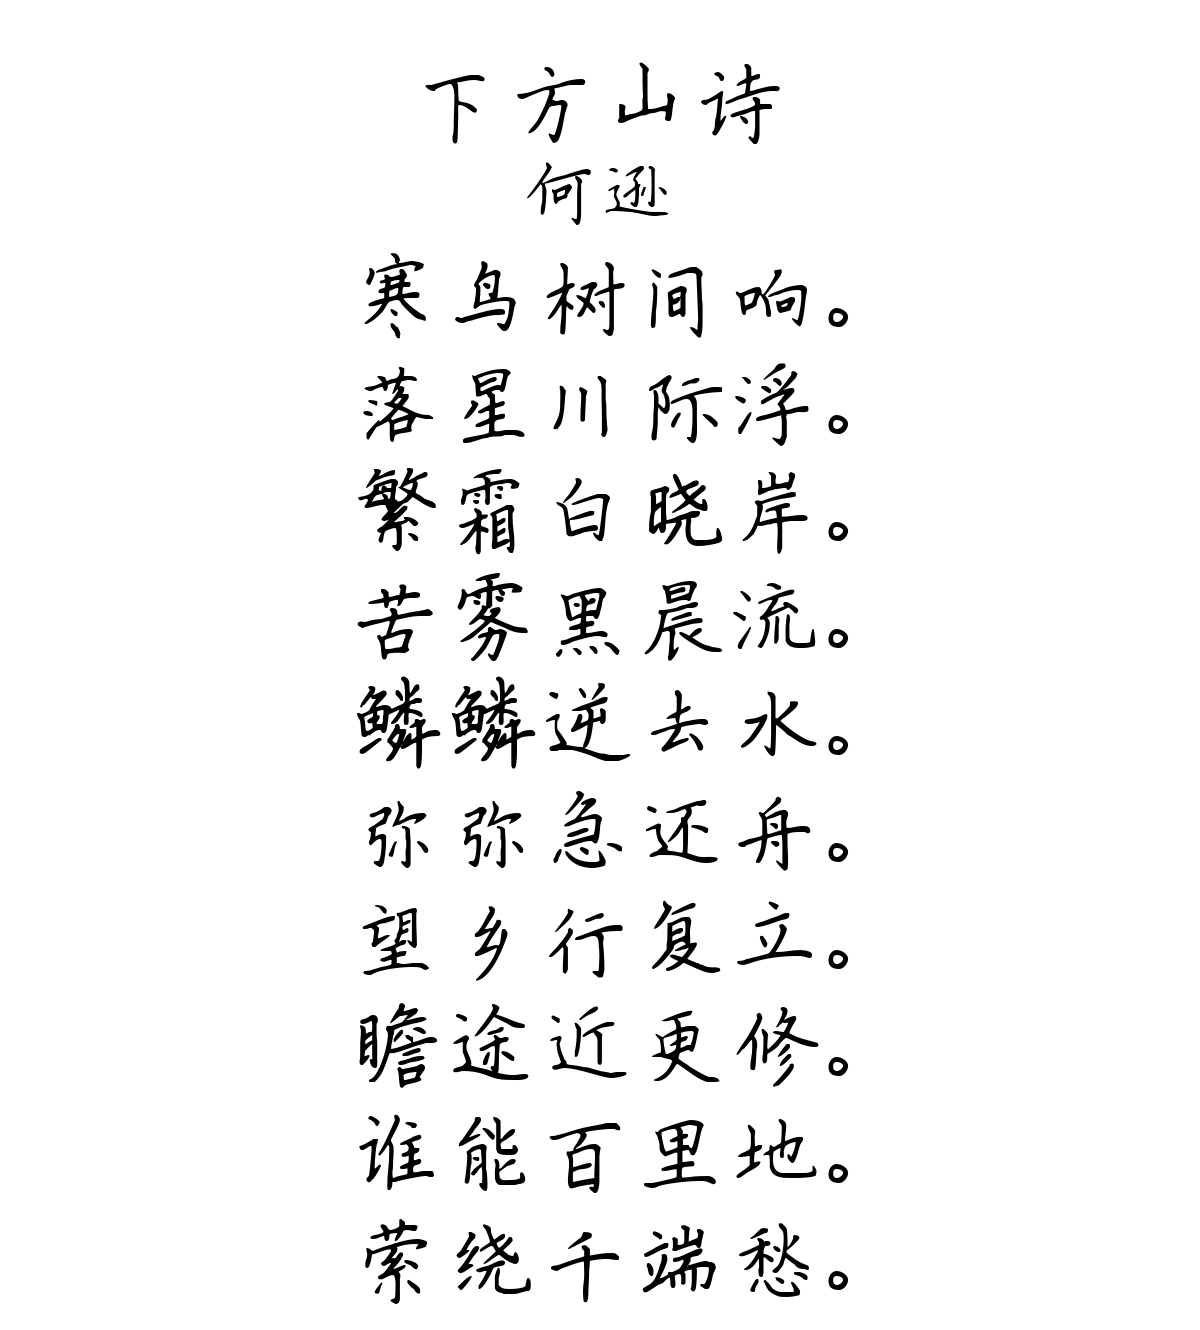 下方山诗
何逊
寒鸟树间响。
落星川际浮。
繁霜白晓岸。
苦雾黑晨流。
鳞鳞逆去水。
弥弥急还舟。
望乡行复立。
瞻途近更修。
谁能百里地。
萦绕千端愁。